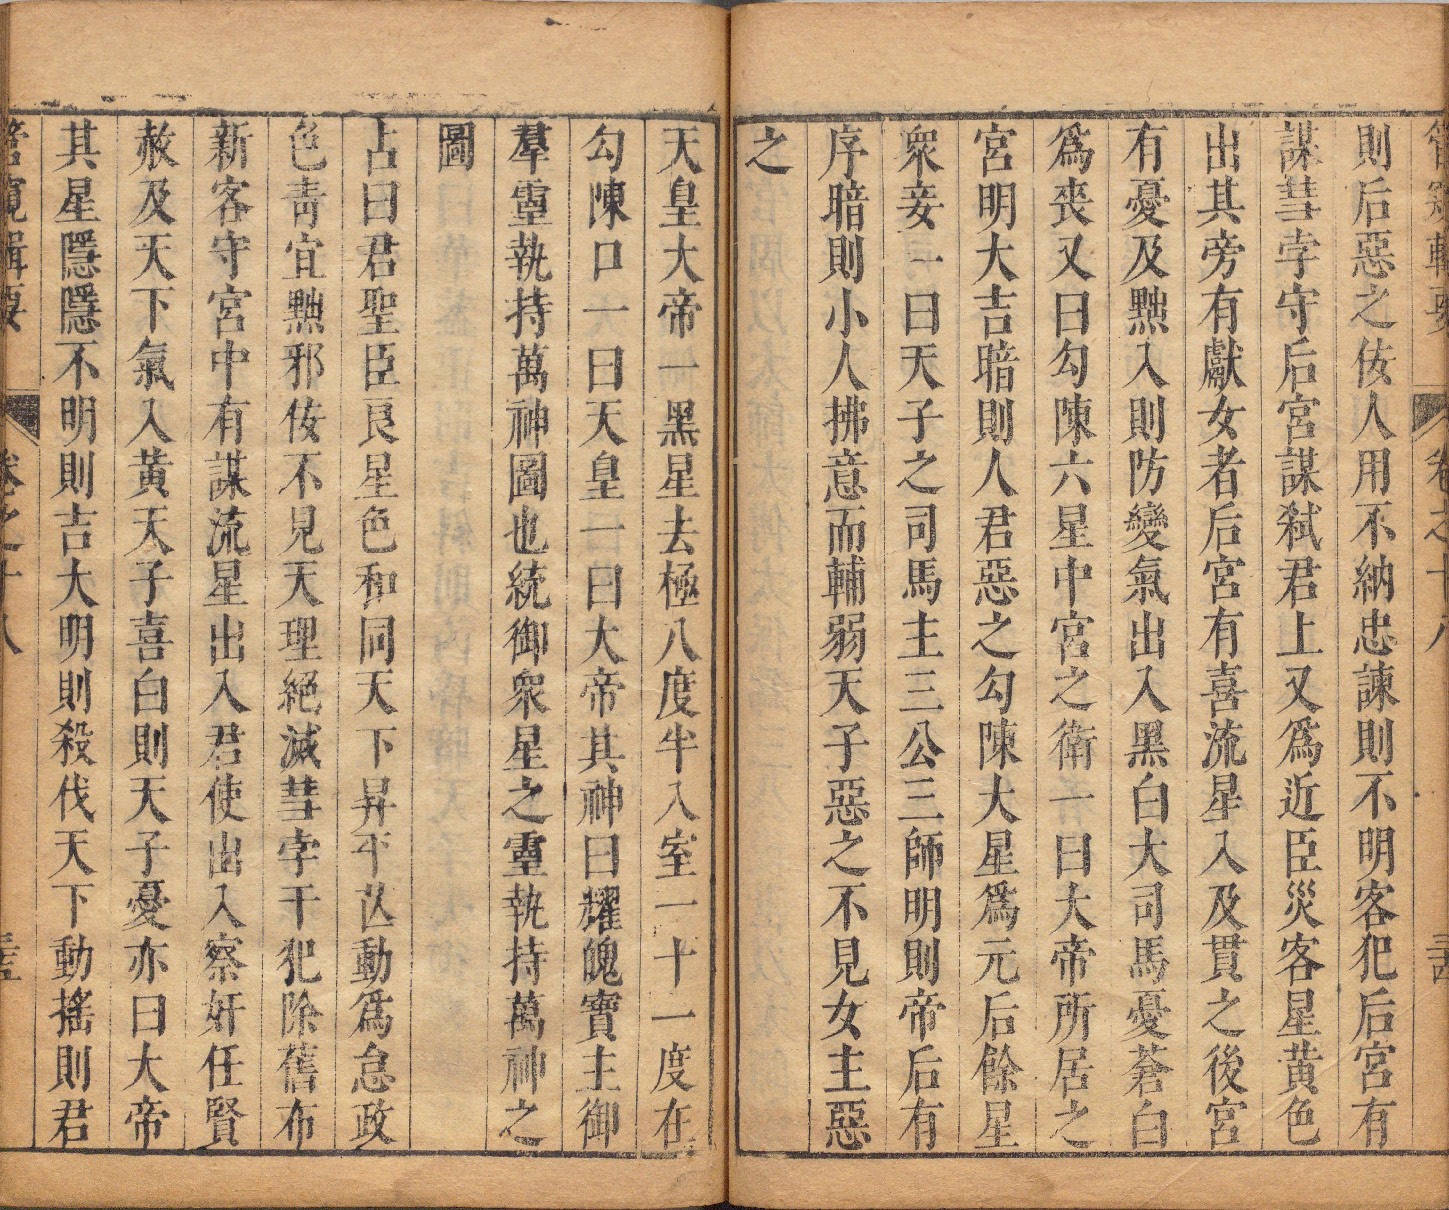 管窺輯要 卷之十八 三古
則后惡之佞人用不納忠諫則不明客犯后宮有
謀彗孛守后宮謀弒君上又爲近臣災客星黃色
出其旁有獻女者后宮有喜流星入及貫之後宮
有憂及黥入則防變氣出入黑白大司馬憂蒼白
爲喪又曰勾陳六星中宮之衛一曰大帝所居之
宮明大吉暗則人君惡之勾陳大星爲元后餘星
衆妾一曰天子之司馬主三公三師明則帝后有
序暗則小人拂意而輔弱天子惡之不見女主惡
之
天皇大帝一黑星去極八度半入室一十一度在
勾陳口一曰天皇一曰大帝其神曰耀魄寶主御
羣靈執持萬神圖也統御衆星之靈執持萬神之
圖
占曰君聖臣良星色和同天下昇平亾動爲怠政
色靑宜黥邪佞不見天理絕滅彗孛干犯除舊布
新客守宮中有謀流星出入君使出入察奸任賢
赦及天下氣入黃天子喜白則天子憂亦曰大帝
其星隱隱不明則吉大明則殺伐天下動搖則君
管窺輯要 卷之十八 三五